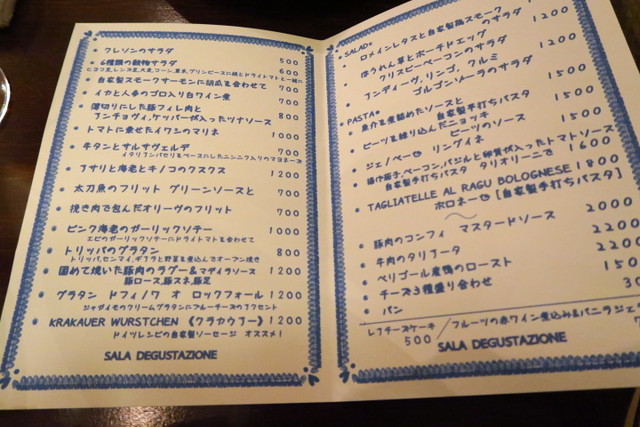 クレソンのサラダ 500
6種類の穀物サラダ 600
自家製スモークサーモンに胡瓜を合わせて 700
イカと人参のゴロ入り白ワイン煮 700
薄切りにした豚フィレ肉と
アンチョヴィ、ケッパーが入ったツナソース 800
トマトに乗せたイワシのマリネ 1000
牛タンとサルサヴェルデ 700
イタリアンパセリをベースにしたニンニク入りのマヨネーズ
アサリと海老とキノコのクスクス 1200
太刀魚のフリット グリーンソースと 700
挽き肉で包んだオリーヴのフリット 700
ピンク海老のガーリックソテー 1000
エビのガーリックソテーにドライトマトを合わせて
トリッパのグラタン 800
トリッパ、センマイ、ギアラと野菜を煮込んでオーブン焼き
固めて焼いた豚肉のラグー&マディラソース 1200
豚ロース、豚スネ、豚足
グラタン ドフィノワ オ ロックフォール 1200
ジャガイモのクリームグラタンにブルーチーズのアクセント
KRAKAUER WURSTCHEN 《クラカウアー》 1200
ドイツレシピの自家製ソーセージ オススメ!
SALA DEGUSTAZIONE
*SALAD*
ロメインレタスと自家製鶏スモーク
のサラダ 1200
ほうれん草とポーチドエッグ
クリスピーベーコンのサラダ 1200
アンディーヴ、リンゴ、クルミ
ゴルゴンゾーラのサラダ 1500
*PASTA*
魚介を煮詰めたソースと
自家製手打ちパスタ 1500
ビーツを練り込んだニョッキ
ビーツのソース 1500
ジェノベーゼ リングイネ 1500
揚げ茄子、ベーコン、バジルと卵黄が入ったトマトソース
自家製手打ちパスタ タリオリーニで 1600
TAGLIATELLE AL RAGU BOLOGNESE 1800
ボロネーゼ [自家製手打ちパスタ]
豚肉のコンフィ マスタードソース 2000
牛肉のタリアータ 2200
ペリゴール産鴨のロースト 2200
チーズ3種盛り合わせ 1500
パン 30
レアチーズケーキ 500 / フルーツの赤ワイン煮込み&バニラジェ
SALA DEGUSTAZIONE